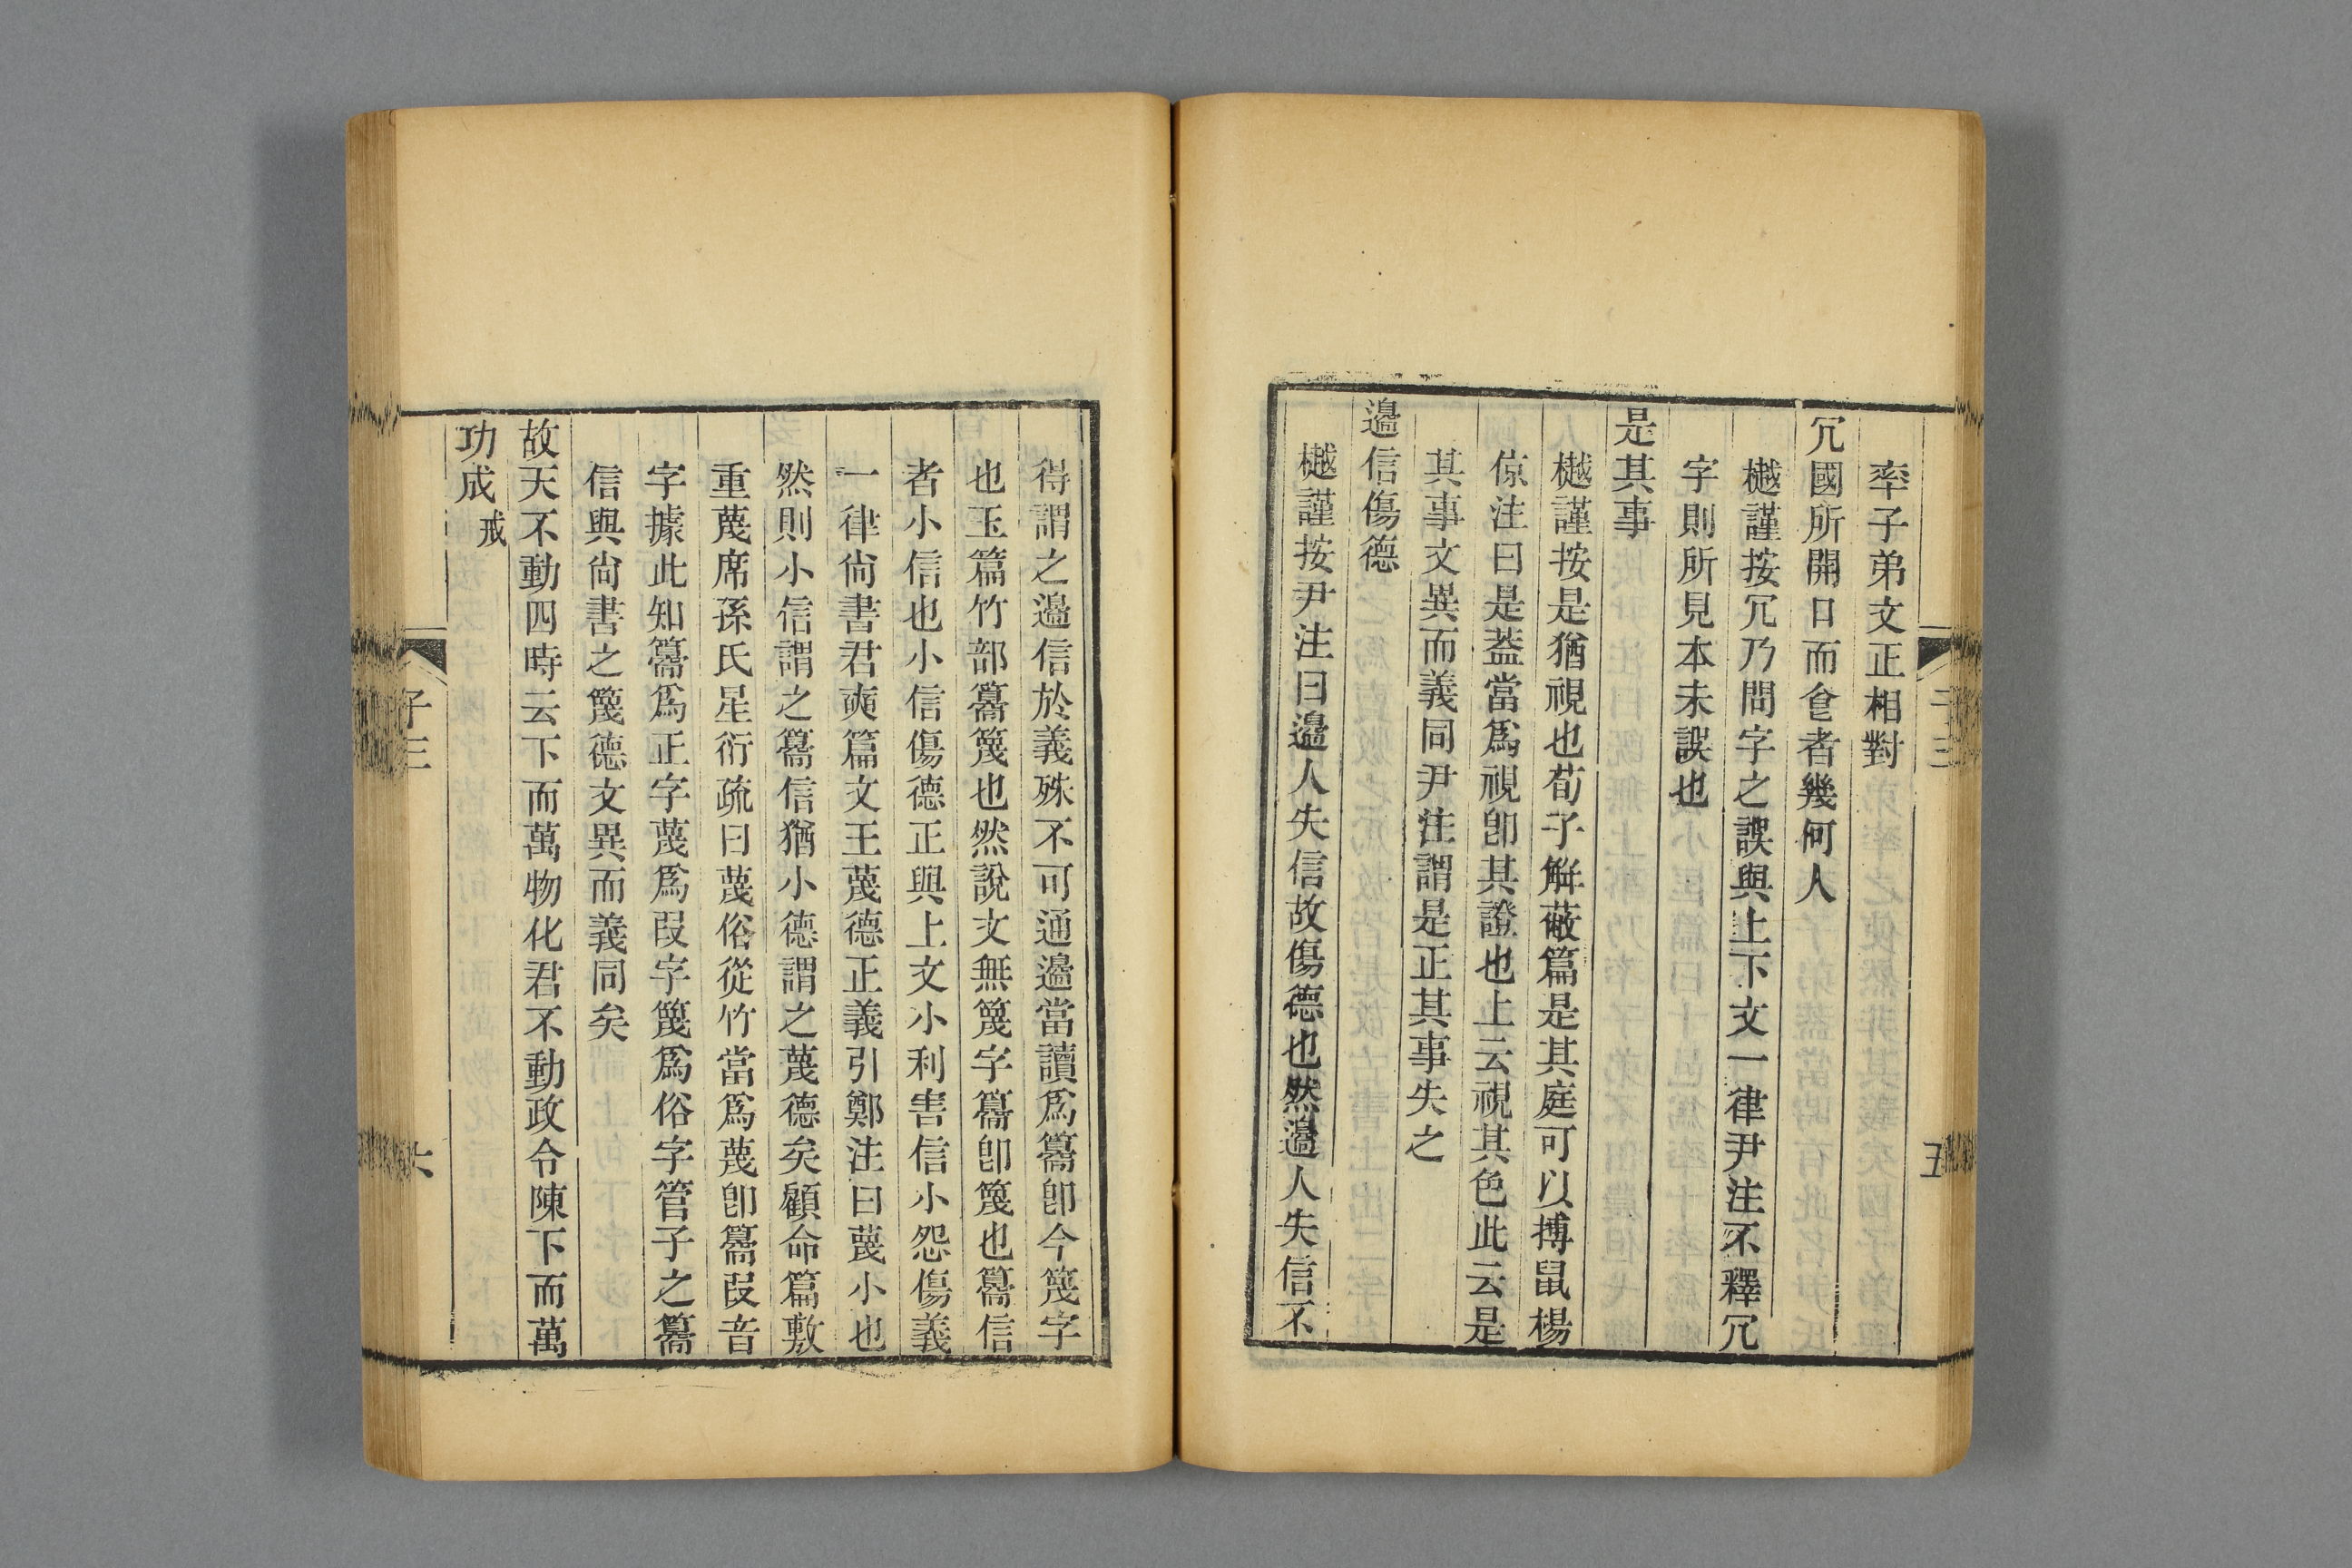 率子弟文正相對
冗國所開口而㑹者幾何人
樾謹按冗乃問字之誤與上下文一律尹注不釋冗
字則所見本未誤也
是其事
樾謹按是猶視也荀子解蔽篇是其庭可以搏鼠楊
倞注曰是葢當爲視卽其證也上云視其色此云是
其事文異而義同尹注謂是正其事失之
邊信傷德
樾謹按尹注曰邊人失信故傷德也然邊人失信不
得謂之邊信於義殊不可通邊當讀爲籩卽今篾字
也玉篇竹部籩篾也然說文無篾字籩卽篾也籩信
者小信也小信傷德正與上文小利害信小怨傷義
一律尙書君奭篇文王蔑德正義引鄭注曰蔑小也
然則小信謂之籩信猶小德謂之蔑德矣顧命篇敷
重蔑席孫氏星衍疏曰蔑俗從竹當爲蔑卽籩叚音
字據此知籩爲正字蔑爲叚字篾爲俗字管子之籩
信與尙書之篾德文異而義同矣
故天不動四時云下而萬物化君不動政令陳下而萬
功成 戒
子三
六
五